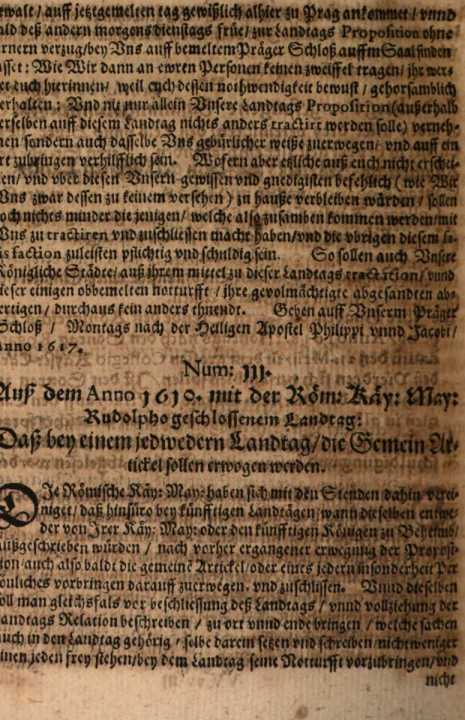 walt / auff jetztgemelten tag gewißlich alhier zu Prag ankommet / vnnd
ald deß andern morgens dienstags früe / zur Landtags Proposition ohne
rnern verzug / bey Vns auff bemeltem Präger Schloß auffm Saal finden
asset: Wie Wir dann an ewren Personen keinen zweiffel tragen / ihr wer-
et euch hierinnen / weil euch dessen nothwendigkeit bewust / gehorsamblich
erhalten: Vnd nit nur allein Vnsere Landtags Proposition (ausserhalb
erselben auff diesem Landtag nichts anders tractirt werden solle) verneh-
men / sondern auch dasselbe Vns gebürlicher weiße zuerwegen / vnd auff ein
rt zubringen verhilfflich sein. Wofern aber etzliche auß euch nicht erschei-
en / vnd vber diesen Vnsern gewissen vnd gnedigisten befehlich (wie Wir
Vns zwar dessen zu keinem versehen) zu hauße verbleiben würden / sollen
och nichts minder die jenigen / welche also zusamben kommen werden / mit
Vns zu tractiren vnd zuschliessen macht haben / vnd die vbrigen diesem sa-
is faction zuleisten pflichtig vnd schuldig sein. So sollen auch Vnsere
Königliche Städte / auß jhrem mittel zu dieser Landtags tractation / vnnd
ieser einigen obbemelten notturfft / jhre gevolmächtigte abgesandten ab-
ertigen / durchaus kein anders thuendt. Geben auff Vnserm Präger
Schloß / Montags nach der Heiligen Apostel Philippi vnnd Jacobi /
nno 1617.
Num: III.
Auß dem Anno 1610. mit der Röm: Käy: May:
Rudolpho geschlossenem Landtag:
Daß bey einem jedwedern Landtag / die Gemein Ar-
tickel sollen erwogen werden.
DJe Römische Käy: May: haben sich mit den Stenden dahin verei-
niget / daß hinfüro bey künfftigen Landtägen / wann dieselben entwe-
der von Jrer Käy: May: oder den künfftigen Königen zu Behemb /
außgeschrieben würden / nach vorher ergangener erwegung der Proposi-
tion / auch also baldt die gemeine Artickel / oder eines jedern in sonderheit Per-
önliches vorbringen darauff zuerwegen / vnd zuschlissen. Vnnd dieselben
oll man gleichsfals vor beschliessung deß Landtags / vnnd vollziehung der
andtags Relation beschreiben / zu ort vnnd ende bringen / welche sachen
auch in den Landtag gehörig / solbe darein setzen vnd schreiben / nicht weniger
inen jeden frey stehen / bey dem Landtag seine Notturfft vorzubringen / vnd
nicht